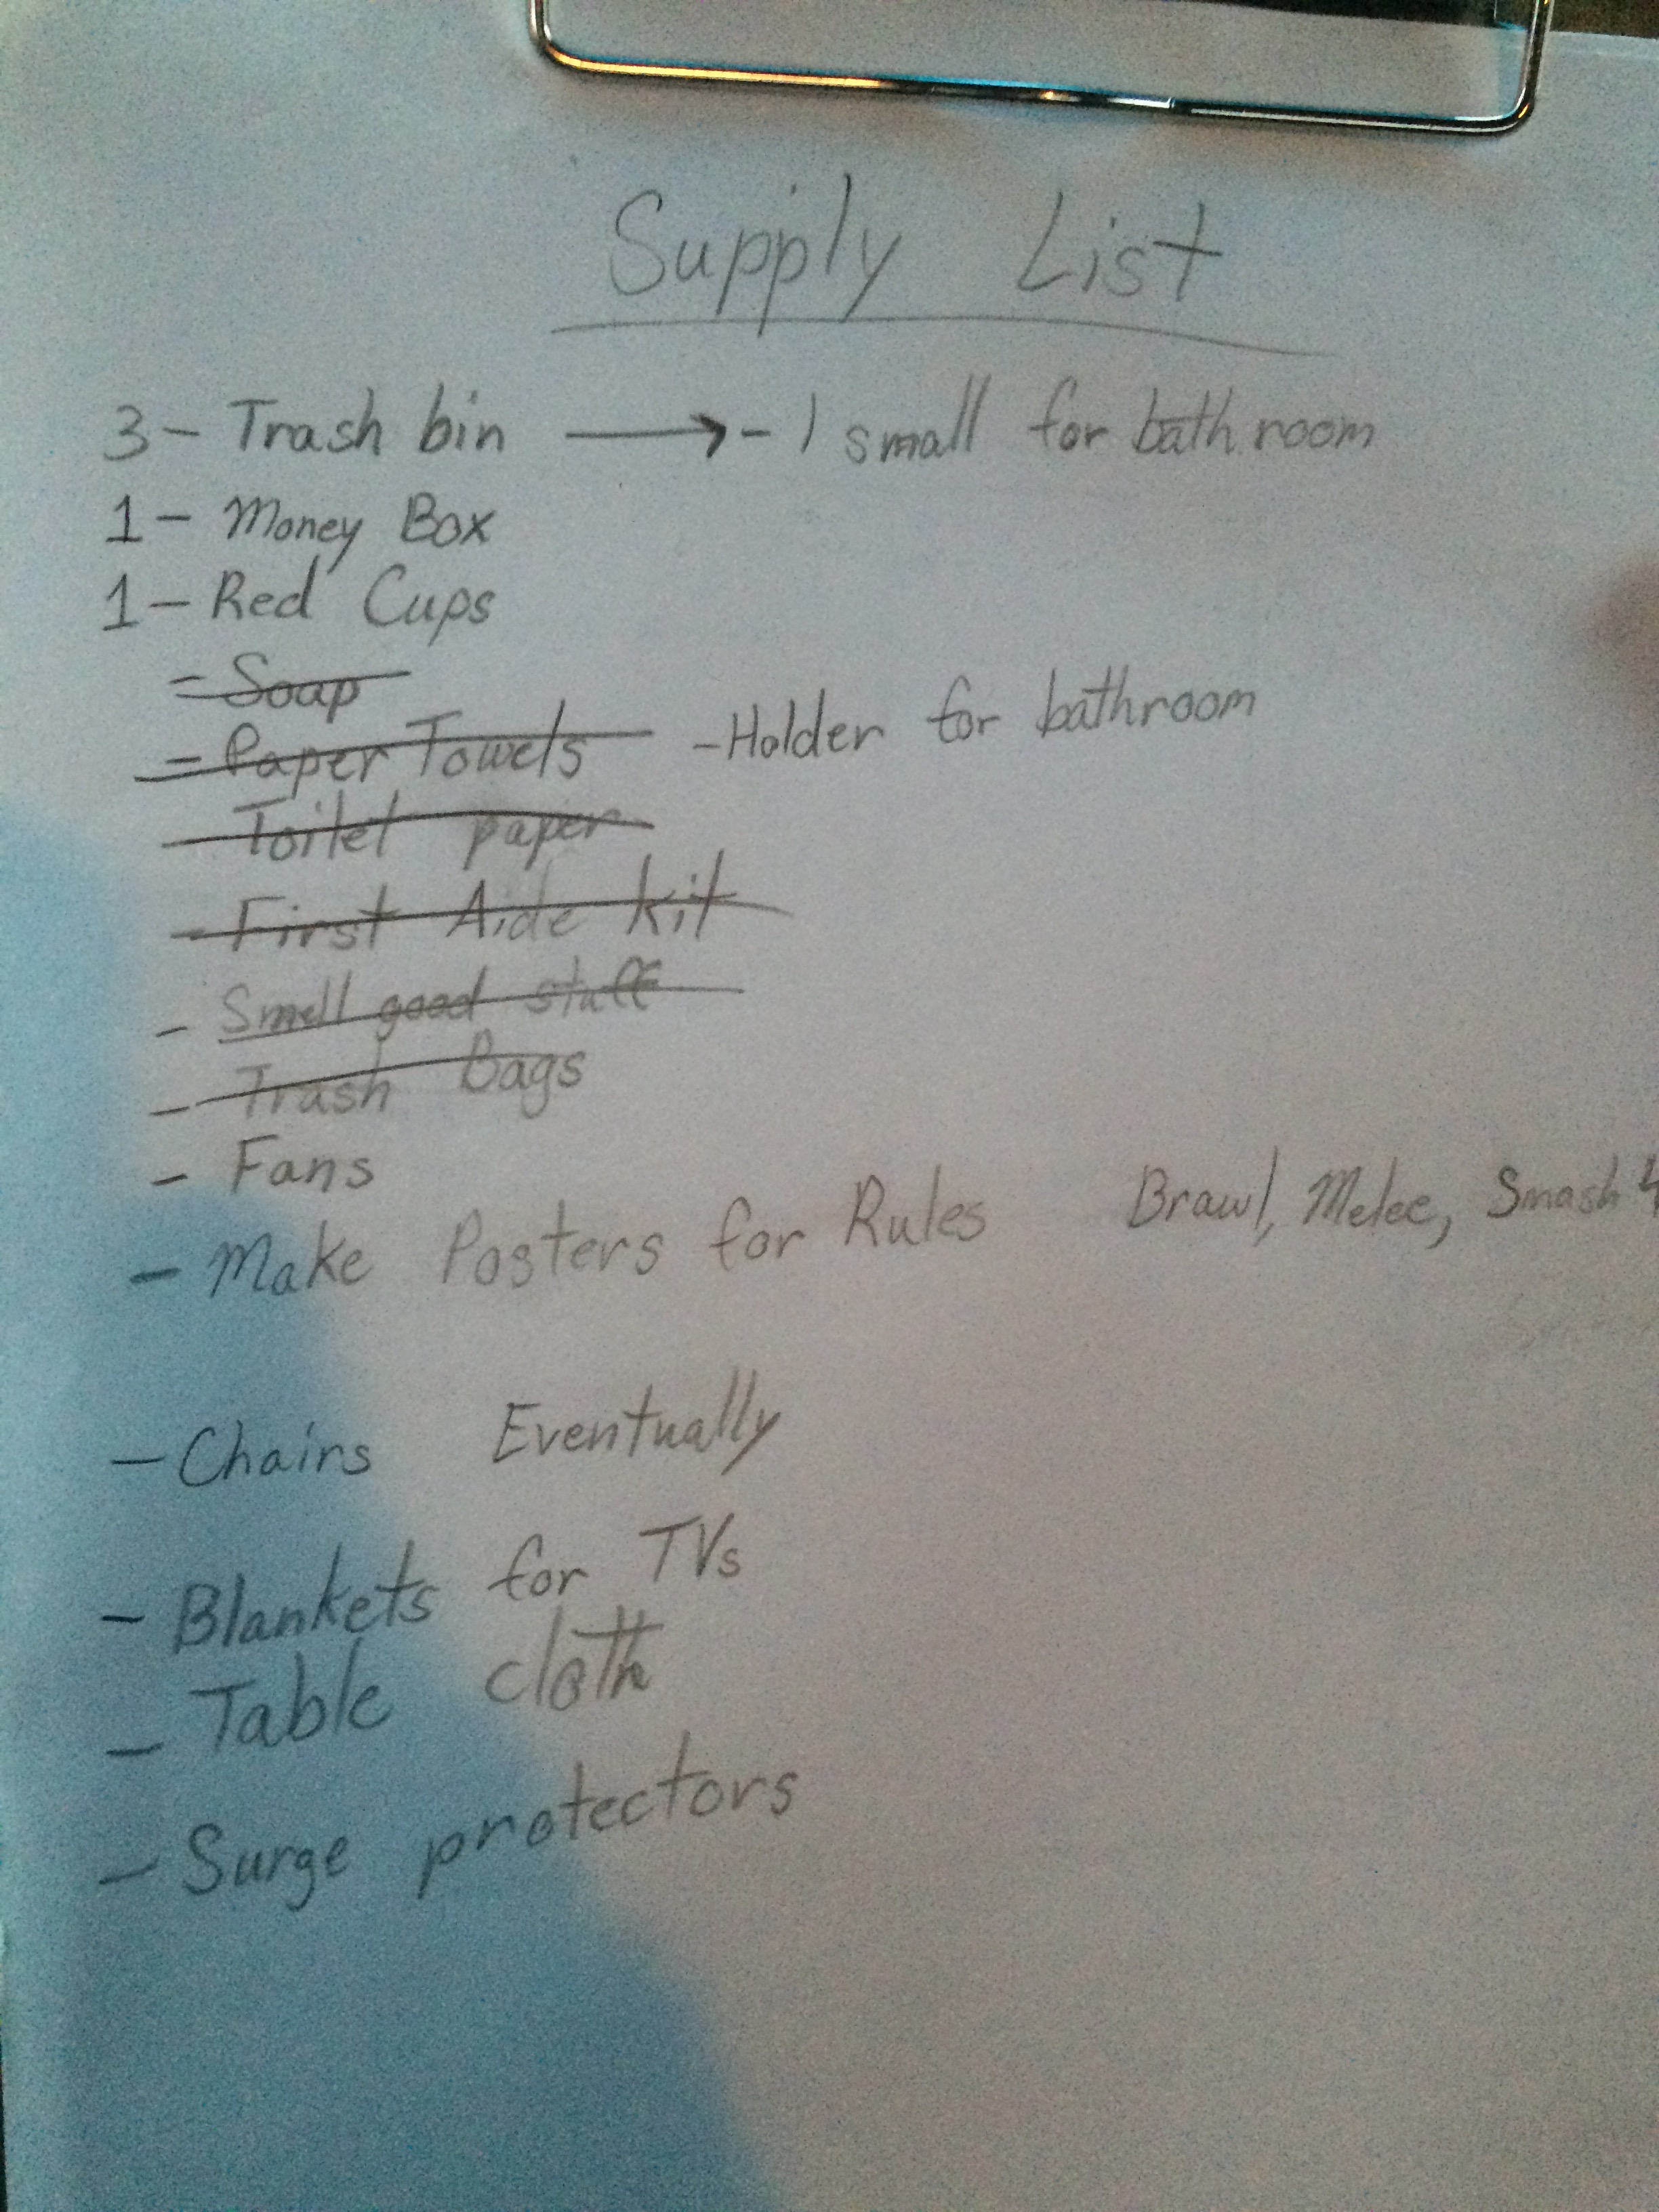 Supply List
3- Trash bin → - 1 small for bathroom
1- Money Box
1- Red Cups
= Soap
= Paper Towels - Holder for bathroom
- Toilet paper
- First Aide kit
- Smell good stuff
- Trash Bags
- Fans
- Make Posters for Rules Brawl, Melee, Smash 4
- Chairs Eventually
- Blankets for TVs
- Table cloth
- Surge protectors